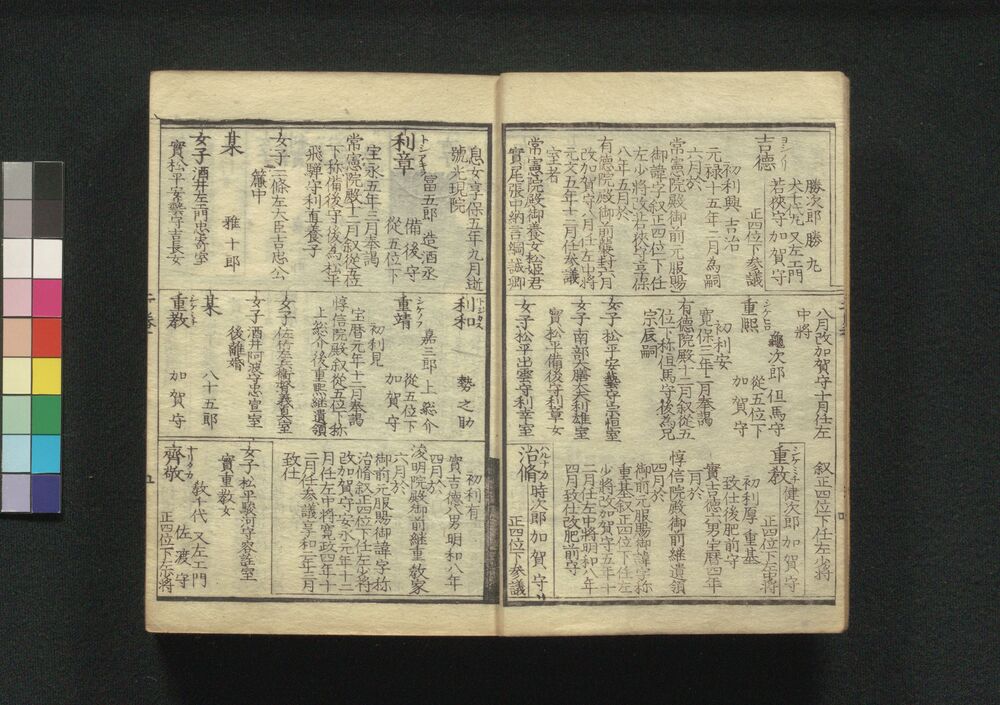 ヨシノリ
吉德
勝次郎 勝丸
犬千代 又左エ門
若狹守 加賀守
正四位下 参議
初利興 吉治
元禄十五年二月為嗣
六月於
常憲院殿御前元服賜
御諱字叙正四位下任
左少将改若狹守享保
八年五月於
有德院殿御前襲封六月
改加賀守八月任左中将
元文五年十二月任参議
室者
常憲院殿御養女松姫君
實尾張中納言綱誠卿
息女享保五年九月逝
號光現院
トシアキラ
利章
富五郎 造酒丞
備後守
從五位下
宝永五年三月奉謁
常憲院殿十二月叙從五位
下称備後守後為松平
飛騨守利直養子
女子 二條左大臣吉忠公
簾中
某
雅十郎
女子 酒井左エ門忠寄室
實松平安藝守吉長女
八月改加賀守十月任左
中将
シゲヒロ
重熙
龜次郎 但馬守
從五位下
加賀守
初利安
寛保三年十二月奉謁
有德院殿十二月叙從五
位下称但馬守後為兄
宗辰嗣
女子 松平安藝守宗恒室
女子 南部大膳大夫利雄室
實松平備後守利章女
女子 松平出雲守利幸室
トシカズ
利和
勢之助
重靖
嘉三郎 上総介
從五位下
加賀守
初利見
宝暦元年十二月奉謁
惇信院殿叙從五位下称
上総介後重熙継遺領
女子 佐竹左兵衛督義真室
女子 酒井阿波守忠宣室
後離婚
某
八十五郎
シゲミチ
重教
加賀守
叙正四位下任左少将
シゲミチ
重教
健次郎 加賀守
正四位下左中将
初利厚 重基
致仕後肥前守
實吉德六男宝暦四年
二月於
惇信院殿御前継遺領
四月於
御前元服賜御諱字称
重基叙正四位下任左
少将改加賀守五年十
二月任左中将明和八年
四月致仕改肥前守
ハルナカ
治脩
時次郎 加賀守
正四位下参議
初利有
實吉德八男明和八年
四月於
浚明院殿御前継重教家
六月於
御前元服賜御諱字称
治脩叙正四位下任左少将
改加賀守安永元年十二
月任左中将寛政四年十
二月任参議享和二年三月
致仕
女子 松平駿河守容詮室
實重教女
ナリタカ
齊敬
教千代 又左エ門
佐渡守
正四位下左少将